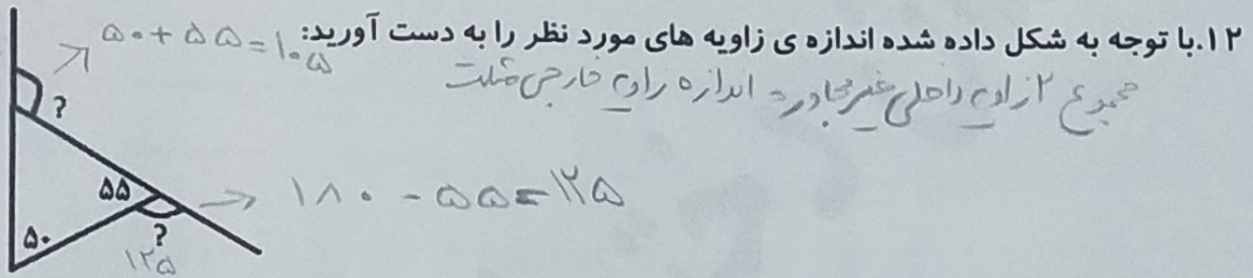 ۱۲.با توجه به شکل داده شده اندازه ی زاویه های مورد نظر را به دست آورید:
۵۰+۵۵=۱۰۵
مجموع ۲ زاویه داخلی غیر مجاور = اندازه زاویه خارجی مثلث
?
۵۵
۱۸۰ - ۵۵ = ۱۲۵
۵۰
?
۱۲۵